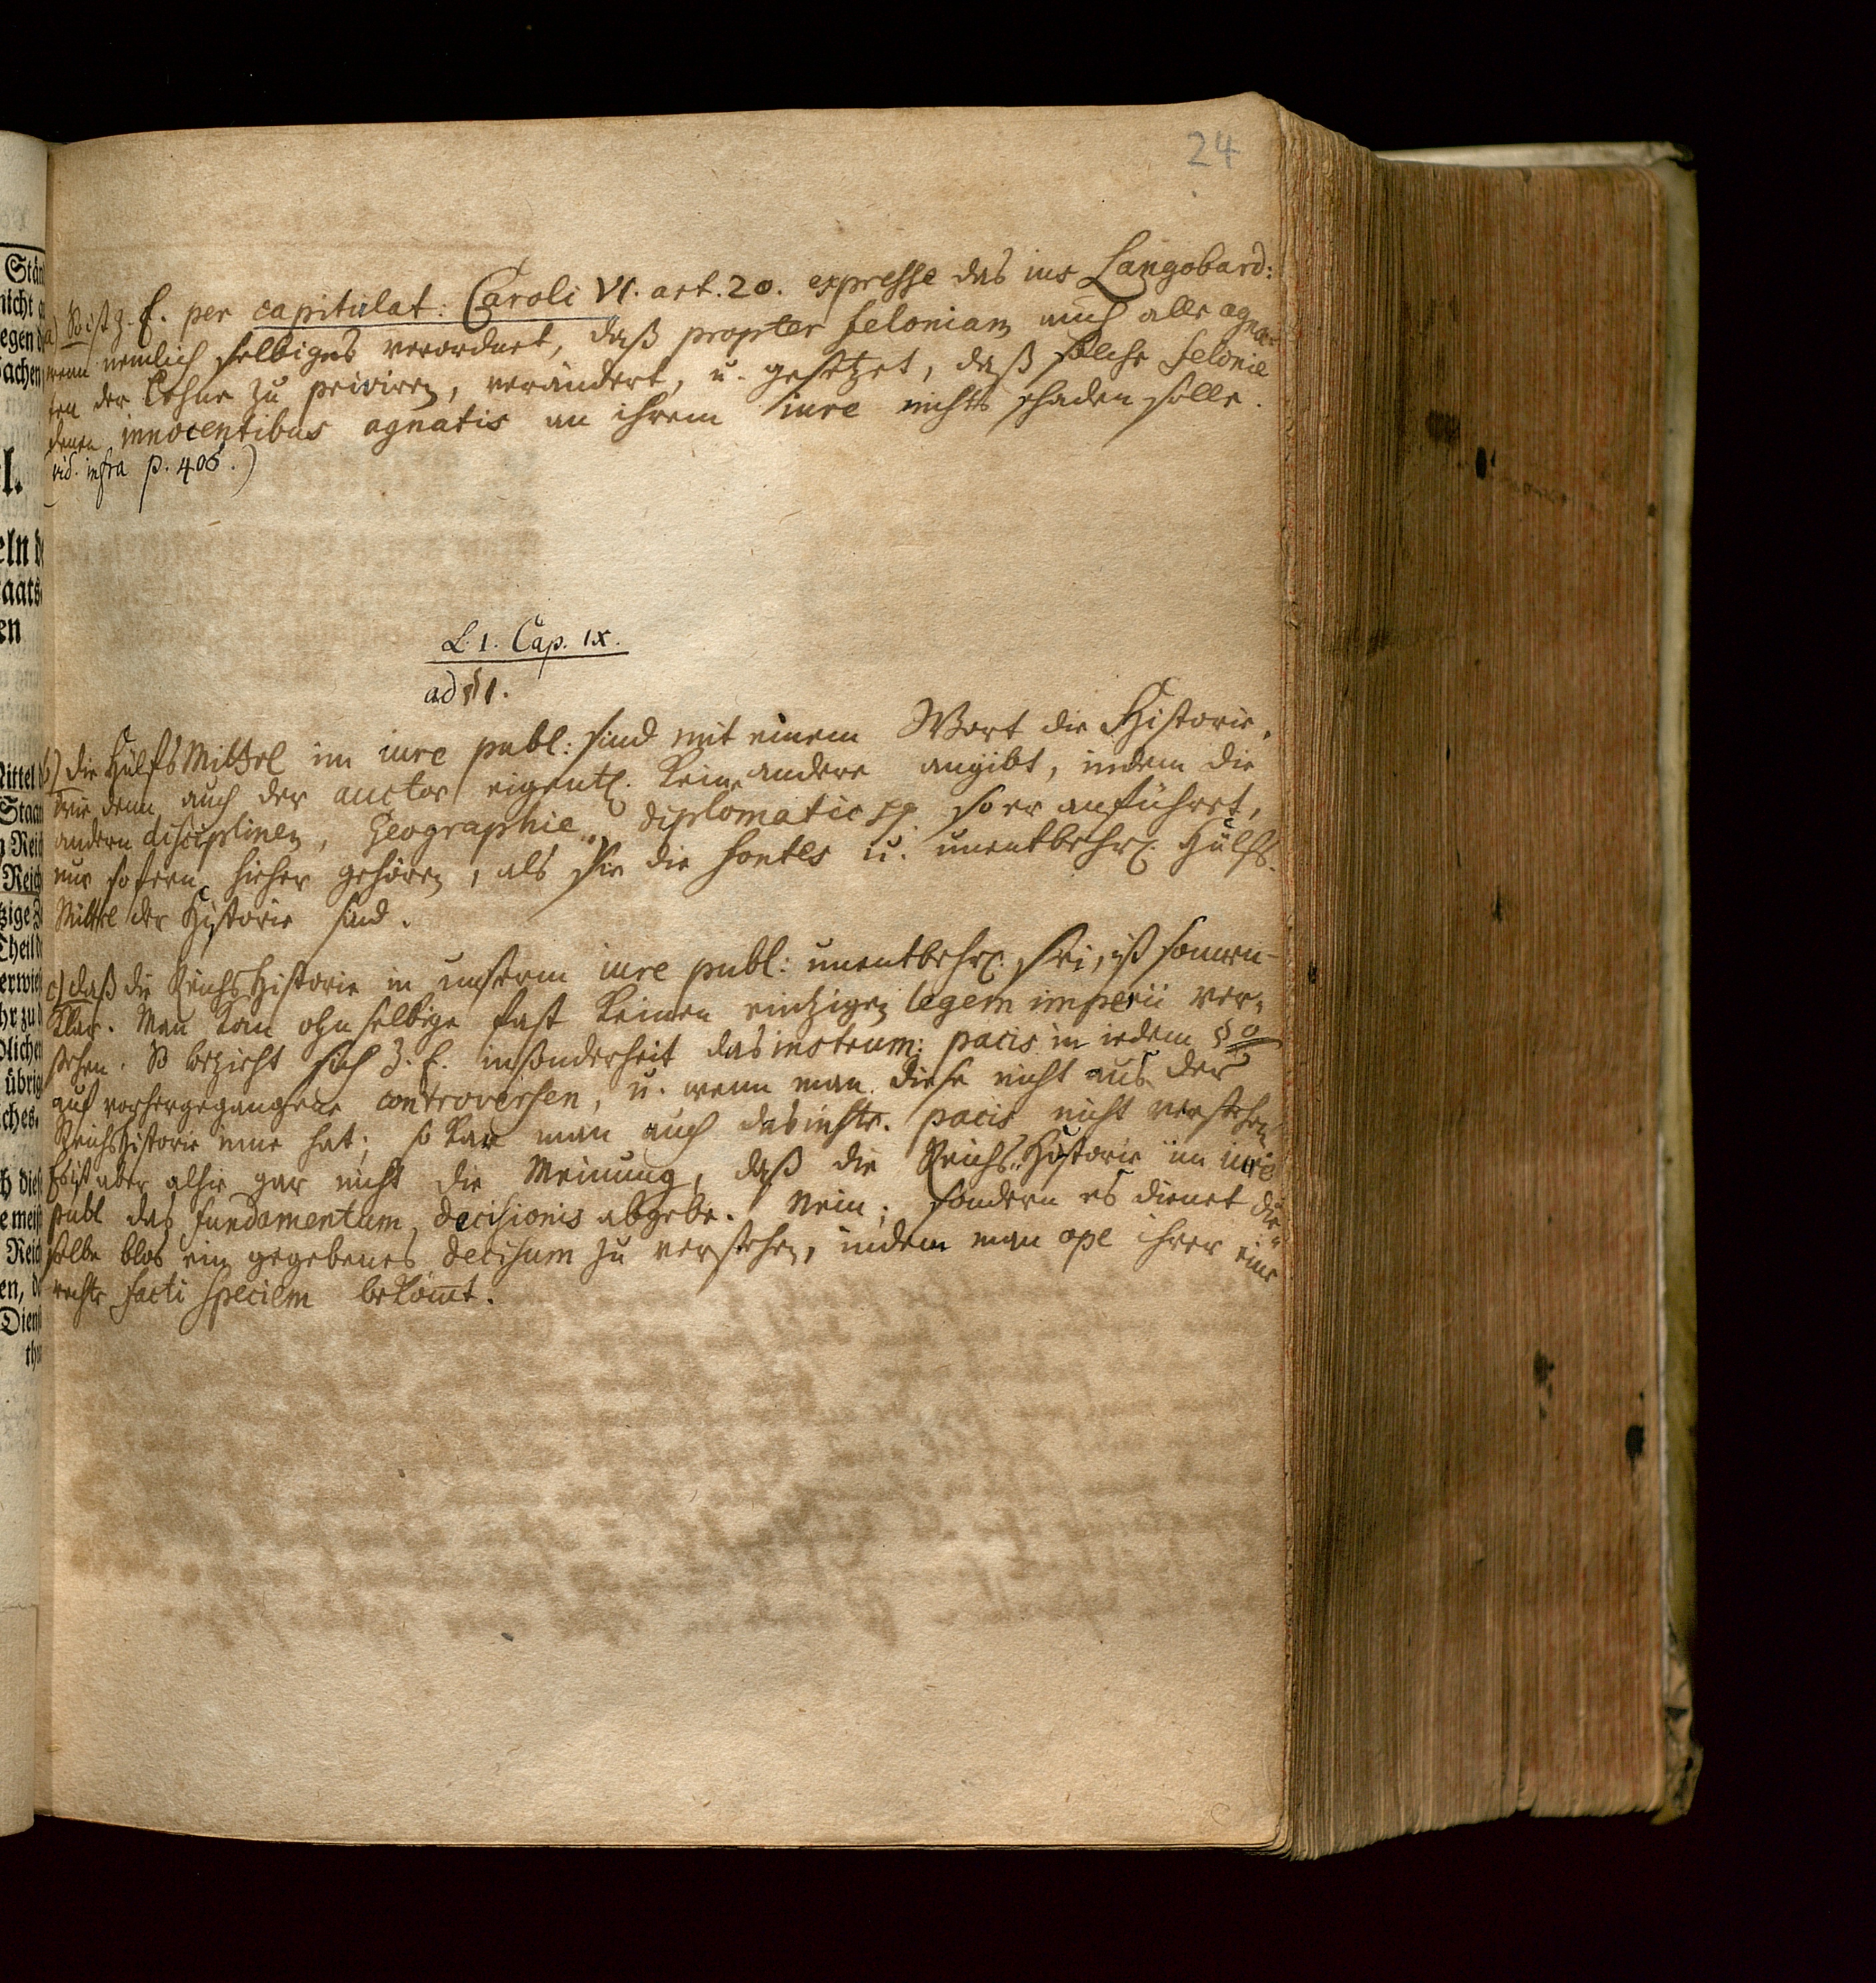 24
a) So ist z. E. per capitulat: Caroli VI. art. 20. expresse das ius Langobard:
wenn nemlich selbiges verordnet, daß propter feloniam auch alle agna-
ten der Lehne zu priviren, verändert, u. gesetzet, daß solche felonie
denen innocentibus agnatis an ihrem iure nichts schaden solle.
vid. infra p. 406.)
L. 1. Cap. IX.
ad § 1.
b) die HülfsMittel im iure publ: sind mit einem Wort die Historie,
wie denn auch der auctor eigentl. keine andere angibt, indem die
andern disciplinen, Geographie, Diplomatic pp. so er anführet,
nur sofern hieher gehören, als sie die fontes u. unentbehrl. Hülfs-
Mittel der Historie sind.
c) daß die ReichsHistorie in unserm iure publ: unentbehrl. sei, ist sonnen-
klar. Man kan ohn selbige fast keinen eintzigen legem imperii ver-
stehen. So bezieht sich z. E. insonderheit das instrum: pacis in iedem §o
auf vorhergegangene controversen, u. wenn man diese nicht aus der
ReichsHistorie inne hat; so kan man auch das instr. pacis nicht verstehen
Es ist aber alhie gar nicht die Meinung, daß die Reichs-Historie im iure
publ das fundamentum decisionis abgebe. Nein; sondern es dienet die-
selbe blos ein gegebenes decisum zu verstehen, indem man ope ihrer eine
rechte facti speciem bekomt.
Stän
nicht
egen d
achen
l.
eln d
aats
en
Mittel d
Staa
n Reich
Reich
tzige
Theil d
erwie
hr zu d
dliche
übrig
ches.
h dies
e meis
Reich
en, d
Diens
th